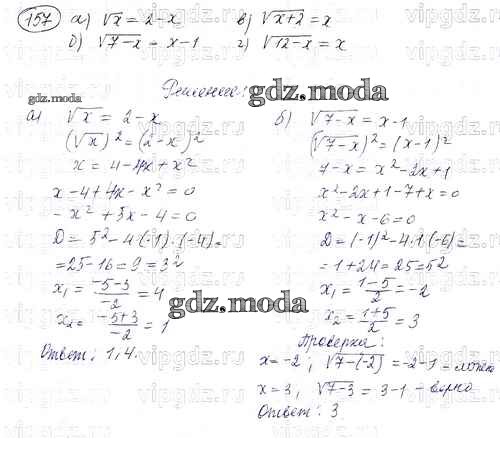 157 а) √x = 2 - x в) √x+2 = x
б) √7-x = x - 1 г) √12-x = x
Решение:
gdz.moda
а) √x = 2 - x
(√x)² = (2 - x)²
x = 4 - 4x + x²
x - 4 + 4x - x² = 0
- x² + 5x - 4 = 0
D = 5² - 4·(-1)·(-4) =
= 25 - 16 = 9 = 3²
x₁ = -5-3/-2 = 4
x₂ = -5+3/-2 = 1
Ответ: 1, 4.
б) √7-x = x - 1
(√7-x)² = (x - 1)²
7 - x = x² - 2x + 1
x² - 2x + 1 - 7 + x = 0
x² - x - 6 = 0
D = (-1)² - 4·1·(-6) =
= 1 + 24 = 25 = 5²
x₁ = 1-5/2 = -2
gdz.moda
x₂ = 1+5/2 = 3
Проверка:
x = -2; √7-(-2) = -2-1 - ложно
x = 3; √7-3 = 3-1 - верно
Ответ: 3
gdz.moda